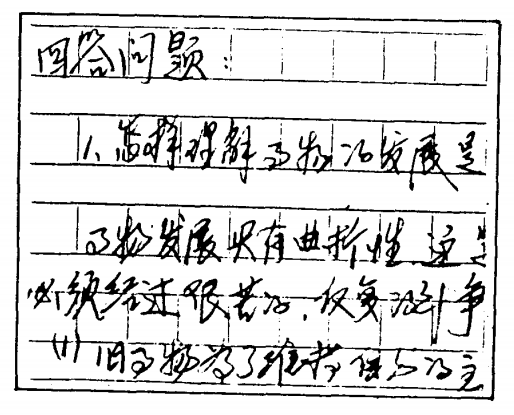 回答问题：
1、怎样理解事物的发展是
事物发展只有曲折性，这是
必须经过艰苦的，反复的斗争
(1)旧事物为了维持自己的主